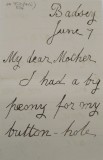 Badsey
June 7
My dear Mother
I had a big
peony for my
button-hole